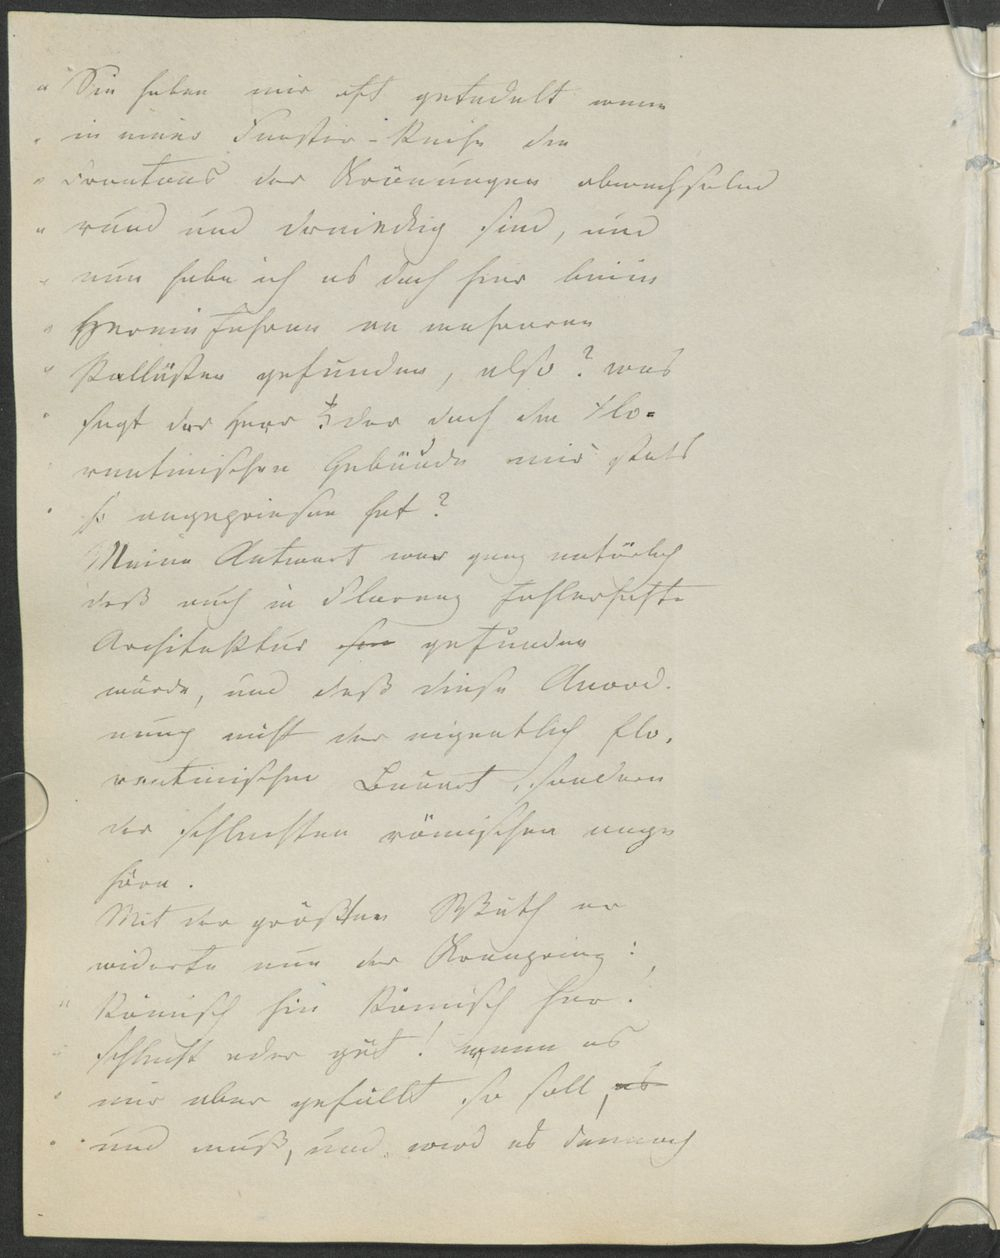 " Sie haben mir oft getadelt wenn
" in einer Fenster-Reihe die
" Frontons der Krönungen abwechselnd
" rund und dreieckig sind, und
" nun habe ich es doch hier beim
" Hereinfahren an mehreren
" Pallästen gefunden, also? was
" sagt der Herr der doch die Flo=
rentinischen Gebäude mir stets
" so angepriesen hat?
Meine Antwort war ganz natürlich
daß auch in Florenz fehlerhafte
Architektur gefunden
würde, und daß diese Anord.
nung nicht der eigentlich flo.
rentinischen Bauart, sondern
der schlechten römischen ange
höre.
Mit der größten Wuth er
widerte nun der Kronprinz:
" Römisch hin Römisch her.
" schlecht oder gut! wenn es
" mir aber gefällt so soll, es
" und muß, und wird es dennoch